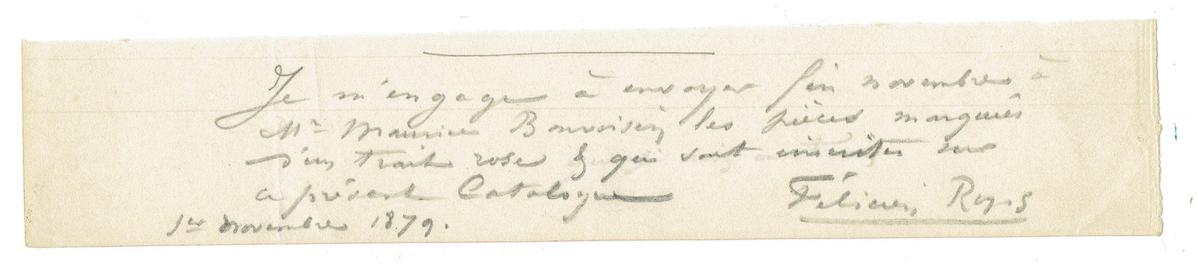 Je m'engage à envoyer fin novembre à
Mr Maurice Bonvoisin les pièces marquées
d'un trait rose & qui sont inscrites sur
ce présent Catalogue
Félicien Rops
1er novembre 1879.